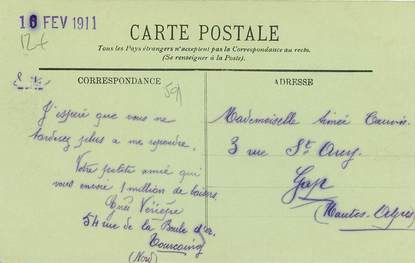 16 FEV 1911
CARTE POSTALE
Tous les Pays étrangers n'acceptent pas la Correspondance au recto.
(Se renseigner à la Poste).
CORRESPONDANCE
59
J'espère que vous ne
tarderez plus a me repondre.
Votre petite amie qui
vous envoie 1 million de baisers
54 rue de la Boule d'or.
Tourcoing
(Nord)
ADRESSE
Mademoiselle Aimée
3 rue St
Gap
(Hautes-Alpes)